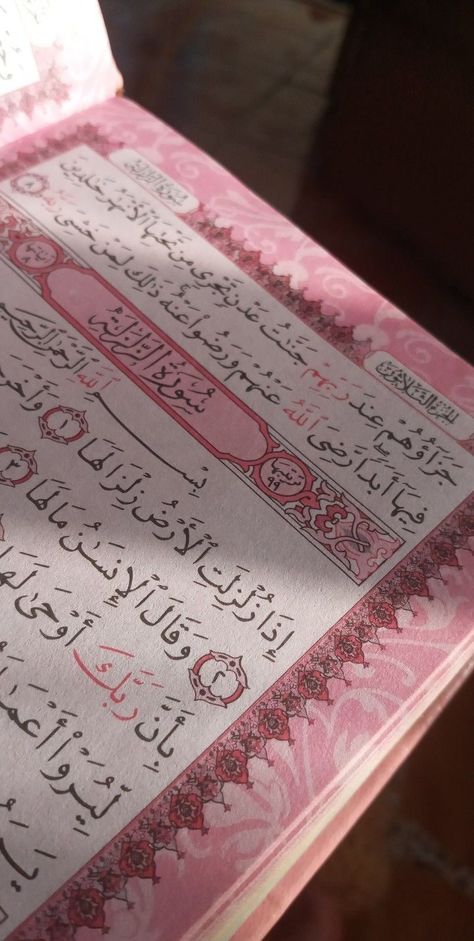 سُورَةُ الزَّلْزَلَةِ
الجُزْءُ الثَّلَاثُونَ
جَزَآؤُهُمْ عِندَ رَبِّهِمْ جَنَّٰتُ عَدْنٍ تَجْرِى مِن تَحْتِهَا ٱلْأَنْهَٰرُ خَٰلِدِينَ
فِيهَآ أَبَدًا رَّضِىَ ٱللَّهُ عَنْهُمْ وَرَضُوا۟ عَنْهُ ذَٰلِكَ لِمَنْ خَشِىَ رَبَّهُۥ ٨
ترتيبها ٩٩ سُورَةُ الزَّلْزَلَةِ
بِسْمِ ٱللَّهِ ٱلرَّحْمَٰنِ ٱلرَّحِيمِ
إِذَا زُلْزِلَتِ ٱلْأَرْضُ زِلْزَالَهَا ١ وَأَخْرَجَ
٢ وَقَالَ ٱلْإِنسَٰنُ مَا لَهَا ٣
بِأَنَّ رَبَّكَ أَوْحَىٰ لَهَا
لِّيُرَوْا۟ أَعْمَٰ